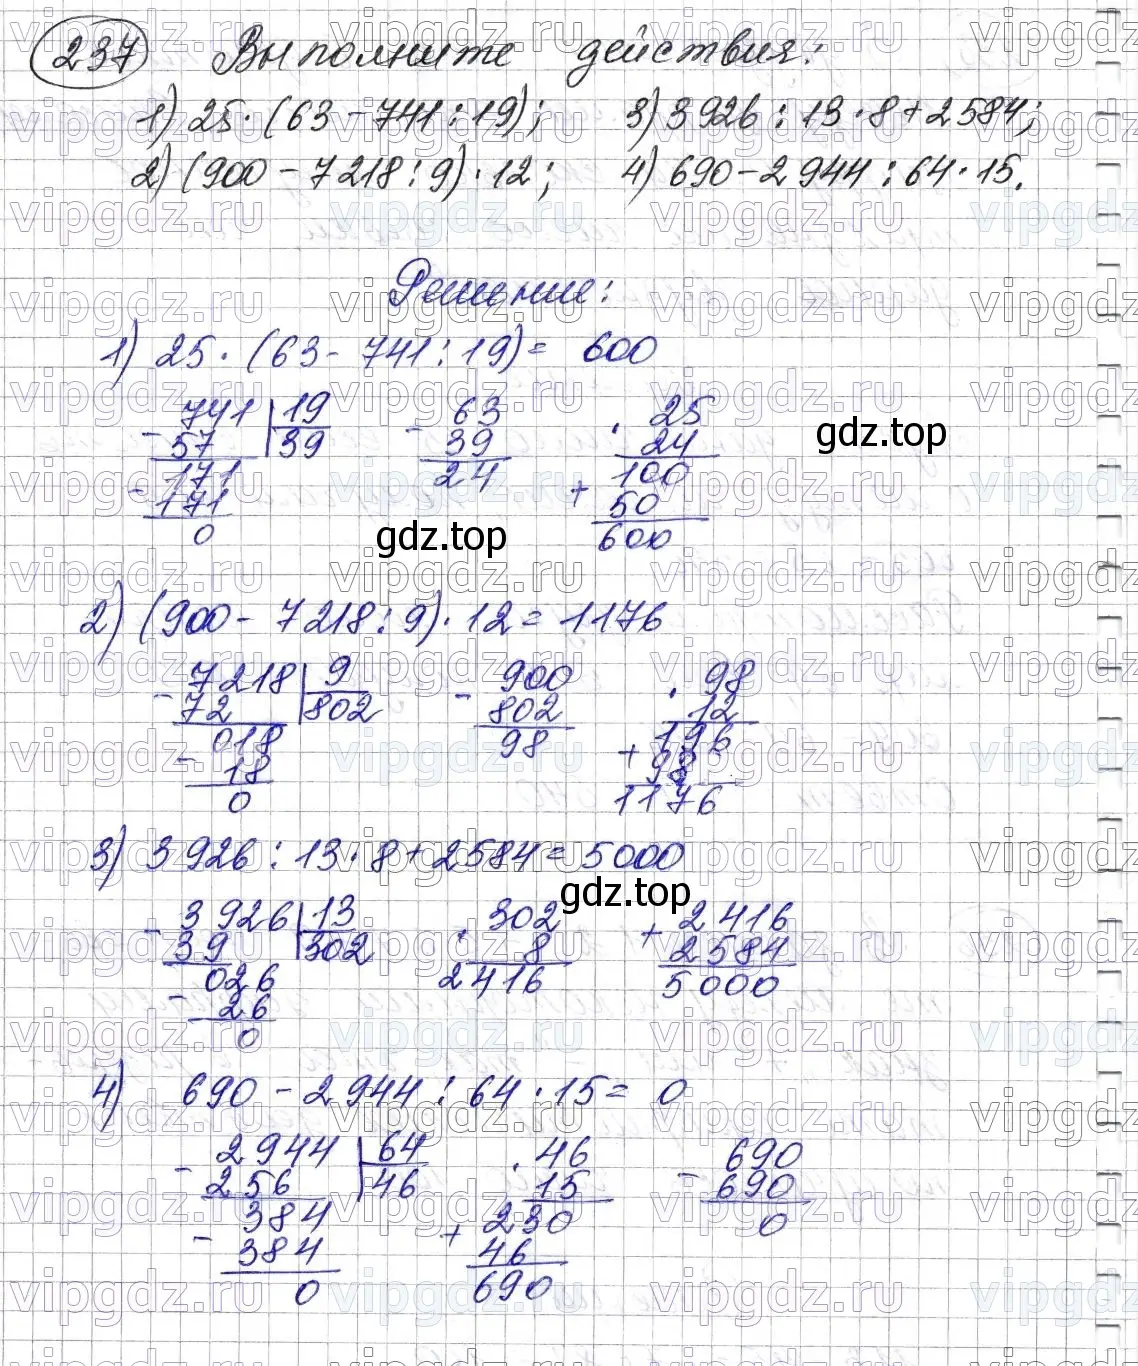 237 Выполните действия:
1) 25·(63-741:19); 3) 3926:13·8+2584;
2) (900-7218:9)·12; 4) 690-2944:64·15.
Решение:
1) 25·(63-741:19)= 600
741 19 63 25
- 57 39 - 39 · 24
171 24 100
- 171 + 50
0 600
gdz.top
gdz.top
2) (900-7218:9)·12=1176
7218 9 900 98
- 72 802 - 802 · 12
018 98 196
- 18 + 98
0 1176
3) 3926:13·8+2584=5000
gdz.top
3926 13 302 2416
- 39 302 · 8 + 2584
026 2416 5000
- 26
0
4) 690-2944:64·15= 0
2944 64 46 690
- 256 46 · 15 - 690
384 230 0
- 384 + 46
0 690